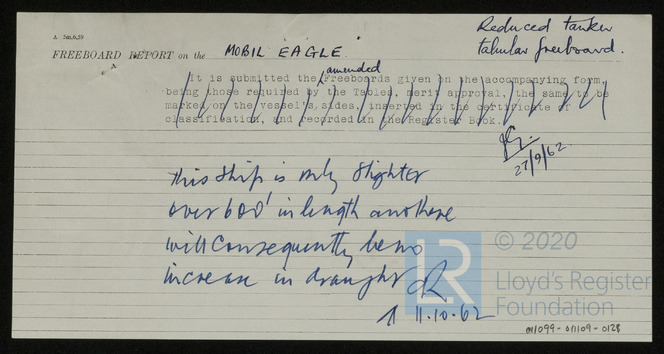 A 5m,6,59
Reduced tanker
tabular freeboard.
FREEBOARD REPORT on the MOBIL EAGLE
amended
It is submitted the Freeboards given on the accompanying form,
being those required by the Tables, merit approval, the same to be
marked on the vessel's sides, inserted in the certificate of
classification, and recorded in the Register Book.
27/9/62.
This ship is only slighter
over 600' in length and there
will consequently be no
increase in draught
11.10.62
LR
© 2020
Lloyd's Register
Foundation
M1099-01109-0128